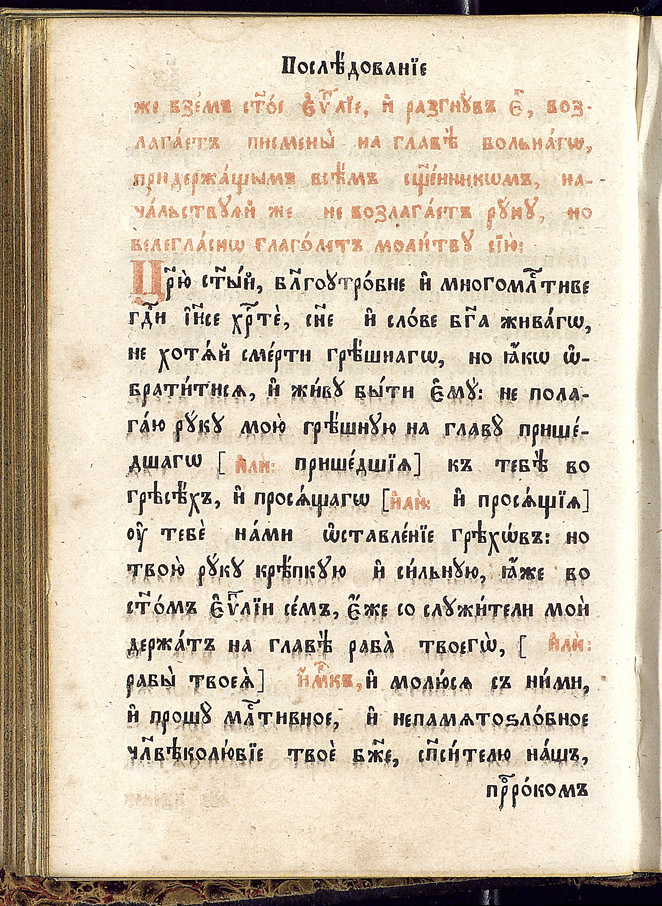 Послѣ́дованїе
же взе́мъ ст҃о́е є҆ѵⷢ҇лїе, и҆ разгнꙋ́въ є҆̀, воз-
лага́етъ писмены̀ на главѣ̀ больна́гѡ,
придержа́щымъ всѣ̑мъ сщ҃е́нникѡмъ, на-
ча́льствꙋяй же не возлага́етъ рꙋкꙋ̀, но
велегла́снѡ глаго́летъ моли́твꙋ сїю̀:
Цр҃ю̀ ст҃ы́й, бл҃гоꙋтро́бне и҆ многомлⷭ҇тиве
гдⷭ҇и і҆и҃се хрⷭ҇тѐ, сн҃е и҆ сло́ве бг҃а жива́гѡ,
не хотѧ́й сме́рти грѣ́шнагѡ, но ꙗ҆́кѡ ѡ҆-
брати́тисѧ, и҆ жи́вꙋ бы́ти є҆мꙋ̀: не пола-
га́ю рꙋ́кꙋ мою̀ грѣ́шнꙋю на главꙋ̀ прише́-
дшагѡ [ и҆лѝ: прише́дшїѧ] къ тебѣ̀ во
грѣсѣ́хъ, и҆ просѧ́щагѡ [и҆лѝ: и҆ просѧ́щїѧ]
ᲂу҆ тебѐ на́ми ѡ҆ставле́нїе грѣхѡ́въ: но
твою̀ рꙋ́кꙋ крѣ́пкꙋю и҆ си́льнꙋю, ꙗ҆́же во
ст҃о́мъ є҆ѵⷢ҇лїи се́мъ, є҆́же со слꙋжи́тели мои̑
держа́тъ на главѣ̀ раба̀ твоегѡ̀, [ и҆лѝ:
рабы̀ твоеѧ̀] и҆́м҃къ, и҆ молю́сѧ съ ни́ми,
и҆ прошꙋ̀ млⷭ҇тивное, и҆ непамѧтоѕло́бное
чл҃вѣколю́бїе твоѐ бж҃е, сп҃си́телю на́шъ,
прⷪ҇ро́комъ